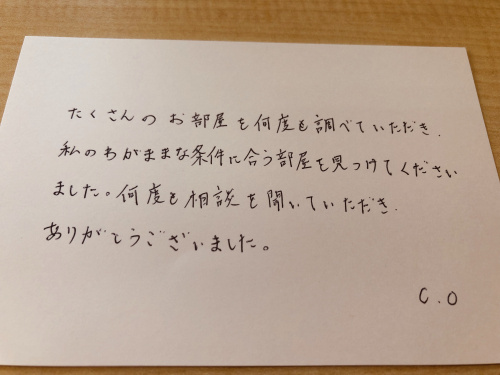 たくさんのお部屋を何度も調べていただき、
私のわがままな条件に合う部屋を見つけてください
ました。何度も相談を聞いていただき、
ありがとうございました。
C.O